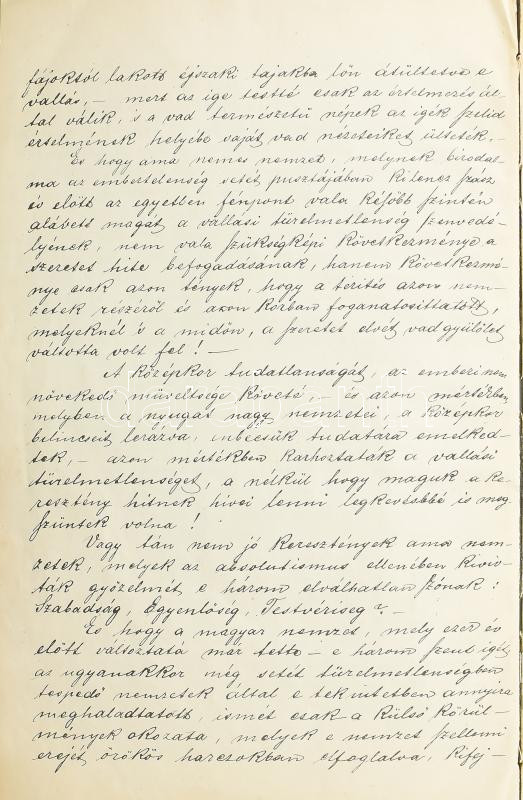 fájoktól lakott éjszaki tajakba lőn átültetve e
vallás, – mert az ige testté csak az értelmezés ál-
tal válik, 's a vad természetű népek az igék szelid
értelmének helyébe saját vad nézeteiket ülteték. –
És hogy ama nemes nemzet, melynek birodal-
ma az embertelenség setét pusztájában kilencz száz
év előtt az egyetlen fénpont vala később szintén
alávetti magát a vallási türelmetlenség szenvedé-
lyének, nem vala szükségképi következménye a
szeretet hite befogadásának, hanem következmé-
nye csak azon tények, hogy a térités azon nem-
zetek részéről és azon korban foganatosittatott,
melyeknél 's a midőn, a szeretet elvét vad gyülölet
váltotta volt fel! –
A Középkor tudatlanságát, az emberi nem
növekedő müveltsége követé, – és azon mértékben
melyben a nyugat nagy nemzetei, a középkor
bilincseit lerázva, önbecsük tudatára emelked-
tek, – azon mértékben kárhoztaták a vallási
türelmetlenséget, a nélkül hogy maguk a ke-
resztény hitnek hívei lenni legkevésbbé is meg-
szüntek volna!
Vagy tán nem jó keresztények ama nem-
zetek, melyek az absolutismus ellenében kiviv-
ták győzelmét e három elválhatlan szónak:
Szabadság, Egyenlőség, Testvériseg? –
És hogy a magyar nemzet, mely ezer év
előtt változtatá már tetté – e három szent igét
az ugyanakkor még setét türelmetlenségben
tespedő nemzetek által e tekintetben annyira
meghaladtatott, ismét csak a külső körül-
mények okozata, melyek e nemzet szellemi
erejét örökös harczokban elfoglalva, kifej-